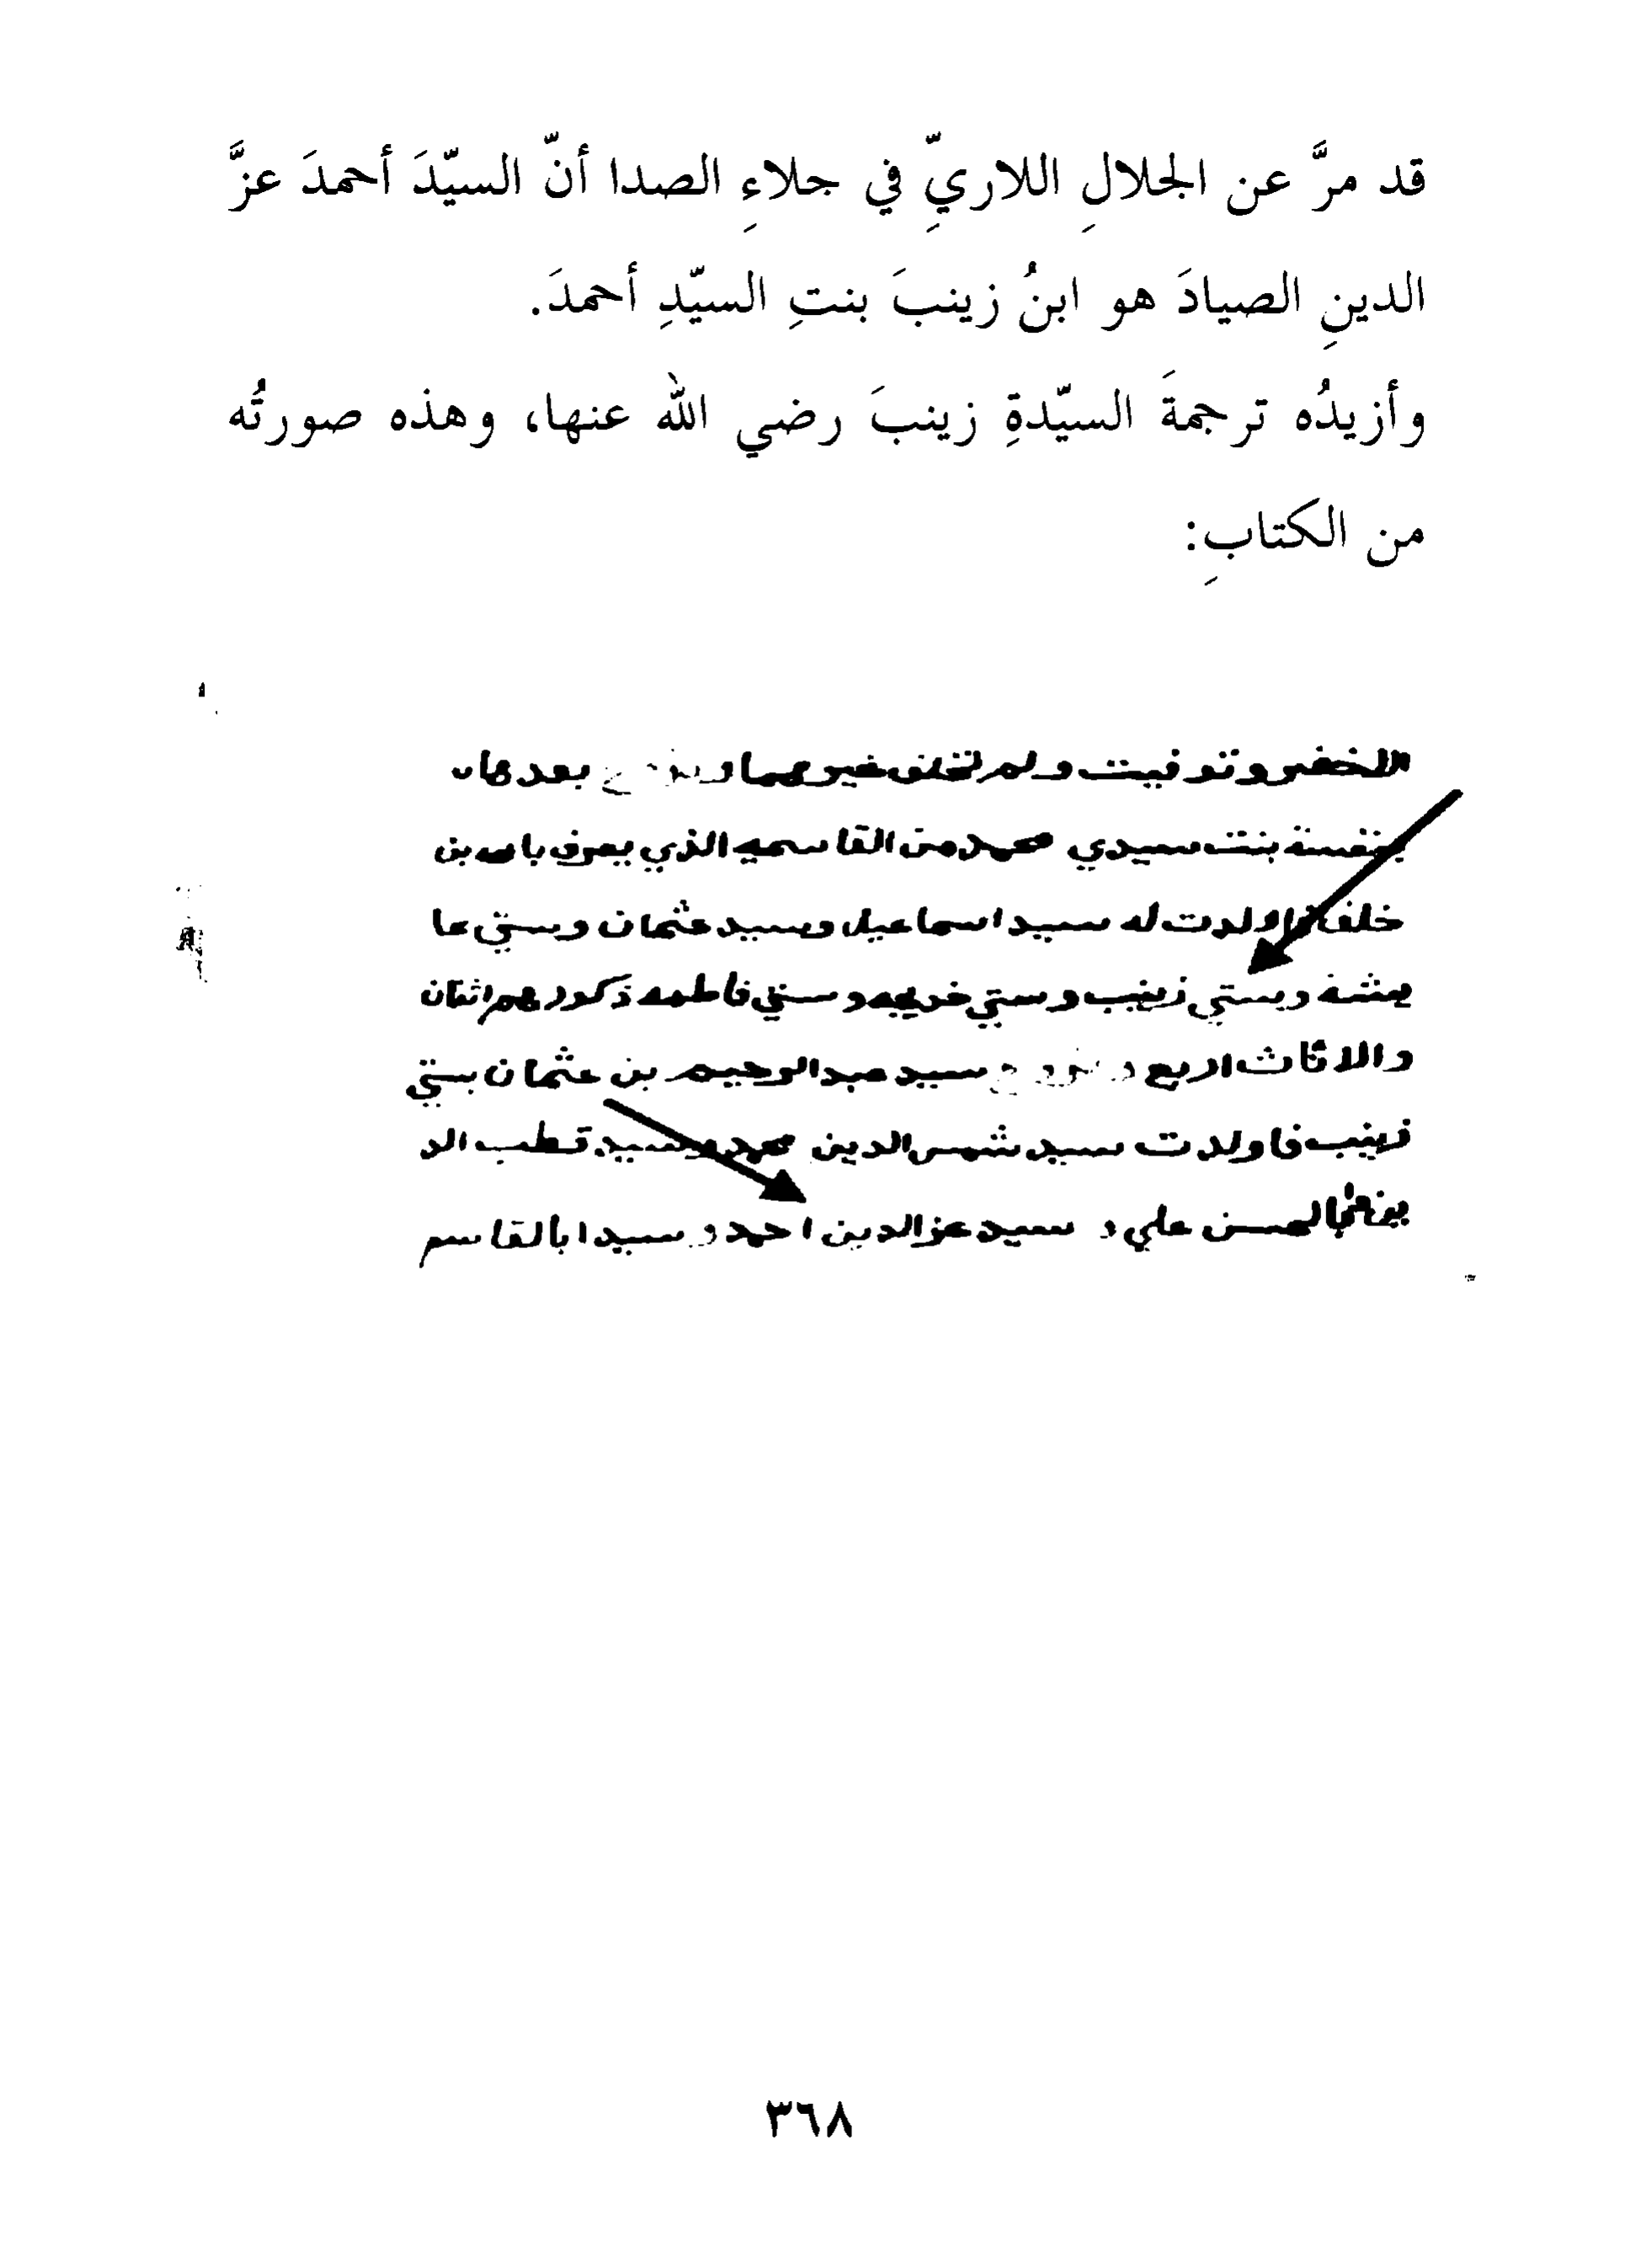 قد مرَّ عن الجلالِ اللاريِّ في جلاءِ الصدا أنّ السيّدَ أحمدَ عزَّ
الدينِ الصيادَ هو ابنُ زينبَ بنتِ السيّدِ أحمدَ.
وأزيدُه ترجمةَ السيّدةِ زينبَ رضي الله عنها، وهذه صورتُه
من الكتابِ:
الاخضر وتوفيت ولم تخلف غيرهما بعدها
بنفيسة بنت سيدي محمد من القاسميه الذي يعرف بابن
خلف اولدت له سيد اسماعيل وسيد عثمان وستي عا
يشه وستي زينب وستي خديجه وستي فاطمه ذكورهم اثنان
والاناث اربع سيد عبدالرحيم بن عثمان بستي
زينب فاولدت سيد شمس الدين محمد وسيد قطب الد
الحسن علي و سيد عز الدين احمد و سيد ابا القاسم
٣٦٨